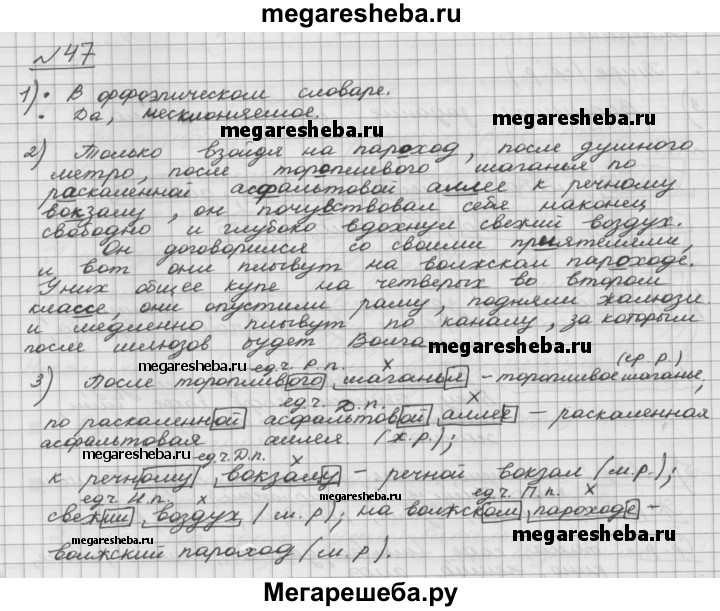 megaresheba.ru
№47
1) • В орфоэпическом словаре.
• Да, несклоняемое.
megaresheba.ru
2) Только взойдя на пароход, после душного
метро, после торопливого шаганья по
раскаленной асфальтовой аллее к речному
вокзалу, он почувствовал себя наконец
свободно и глубоко вдохнул свежий воздух.
Он договорился со своими приятелями,
и вот они плывут на волжском пароходе.
У них общее купе на четверых во втором
классе, они опустили раму, подняли жалюзи
и медленно плывут по каналу, за которым
после шлюзов будет Волга
megaresheba.ru
megaresheba.ru
ед.ч. Р.п. х (ср.р.)
3) После торопливого шаганья – торопливое шаганье,
ед.ч. Д.п. х
по раскаленной асфальтовой аллее – раскаленная
асфальтовая аллея (ж.р.);
megaresheba.ru
ед.ч. Д.п. х
к речному вокзалу – речной вокзал (м.р.);
ед.ч. И.п. х ед.ч. П.п. х
megaresheba.ru
свежий воздух (м.р.); на волжском пароходе –
megaresheba.ru
волжский пароход (м.р).
Мегарешеба.ру